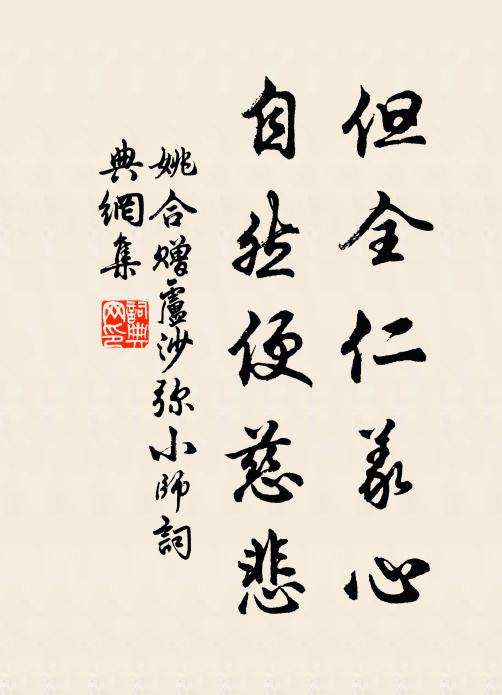 但全仁義心
自然便慈悲
姚合赠盧沙弥小師詞
典網集
詞典
网印